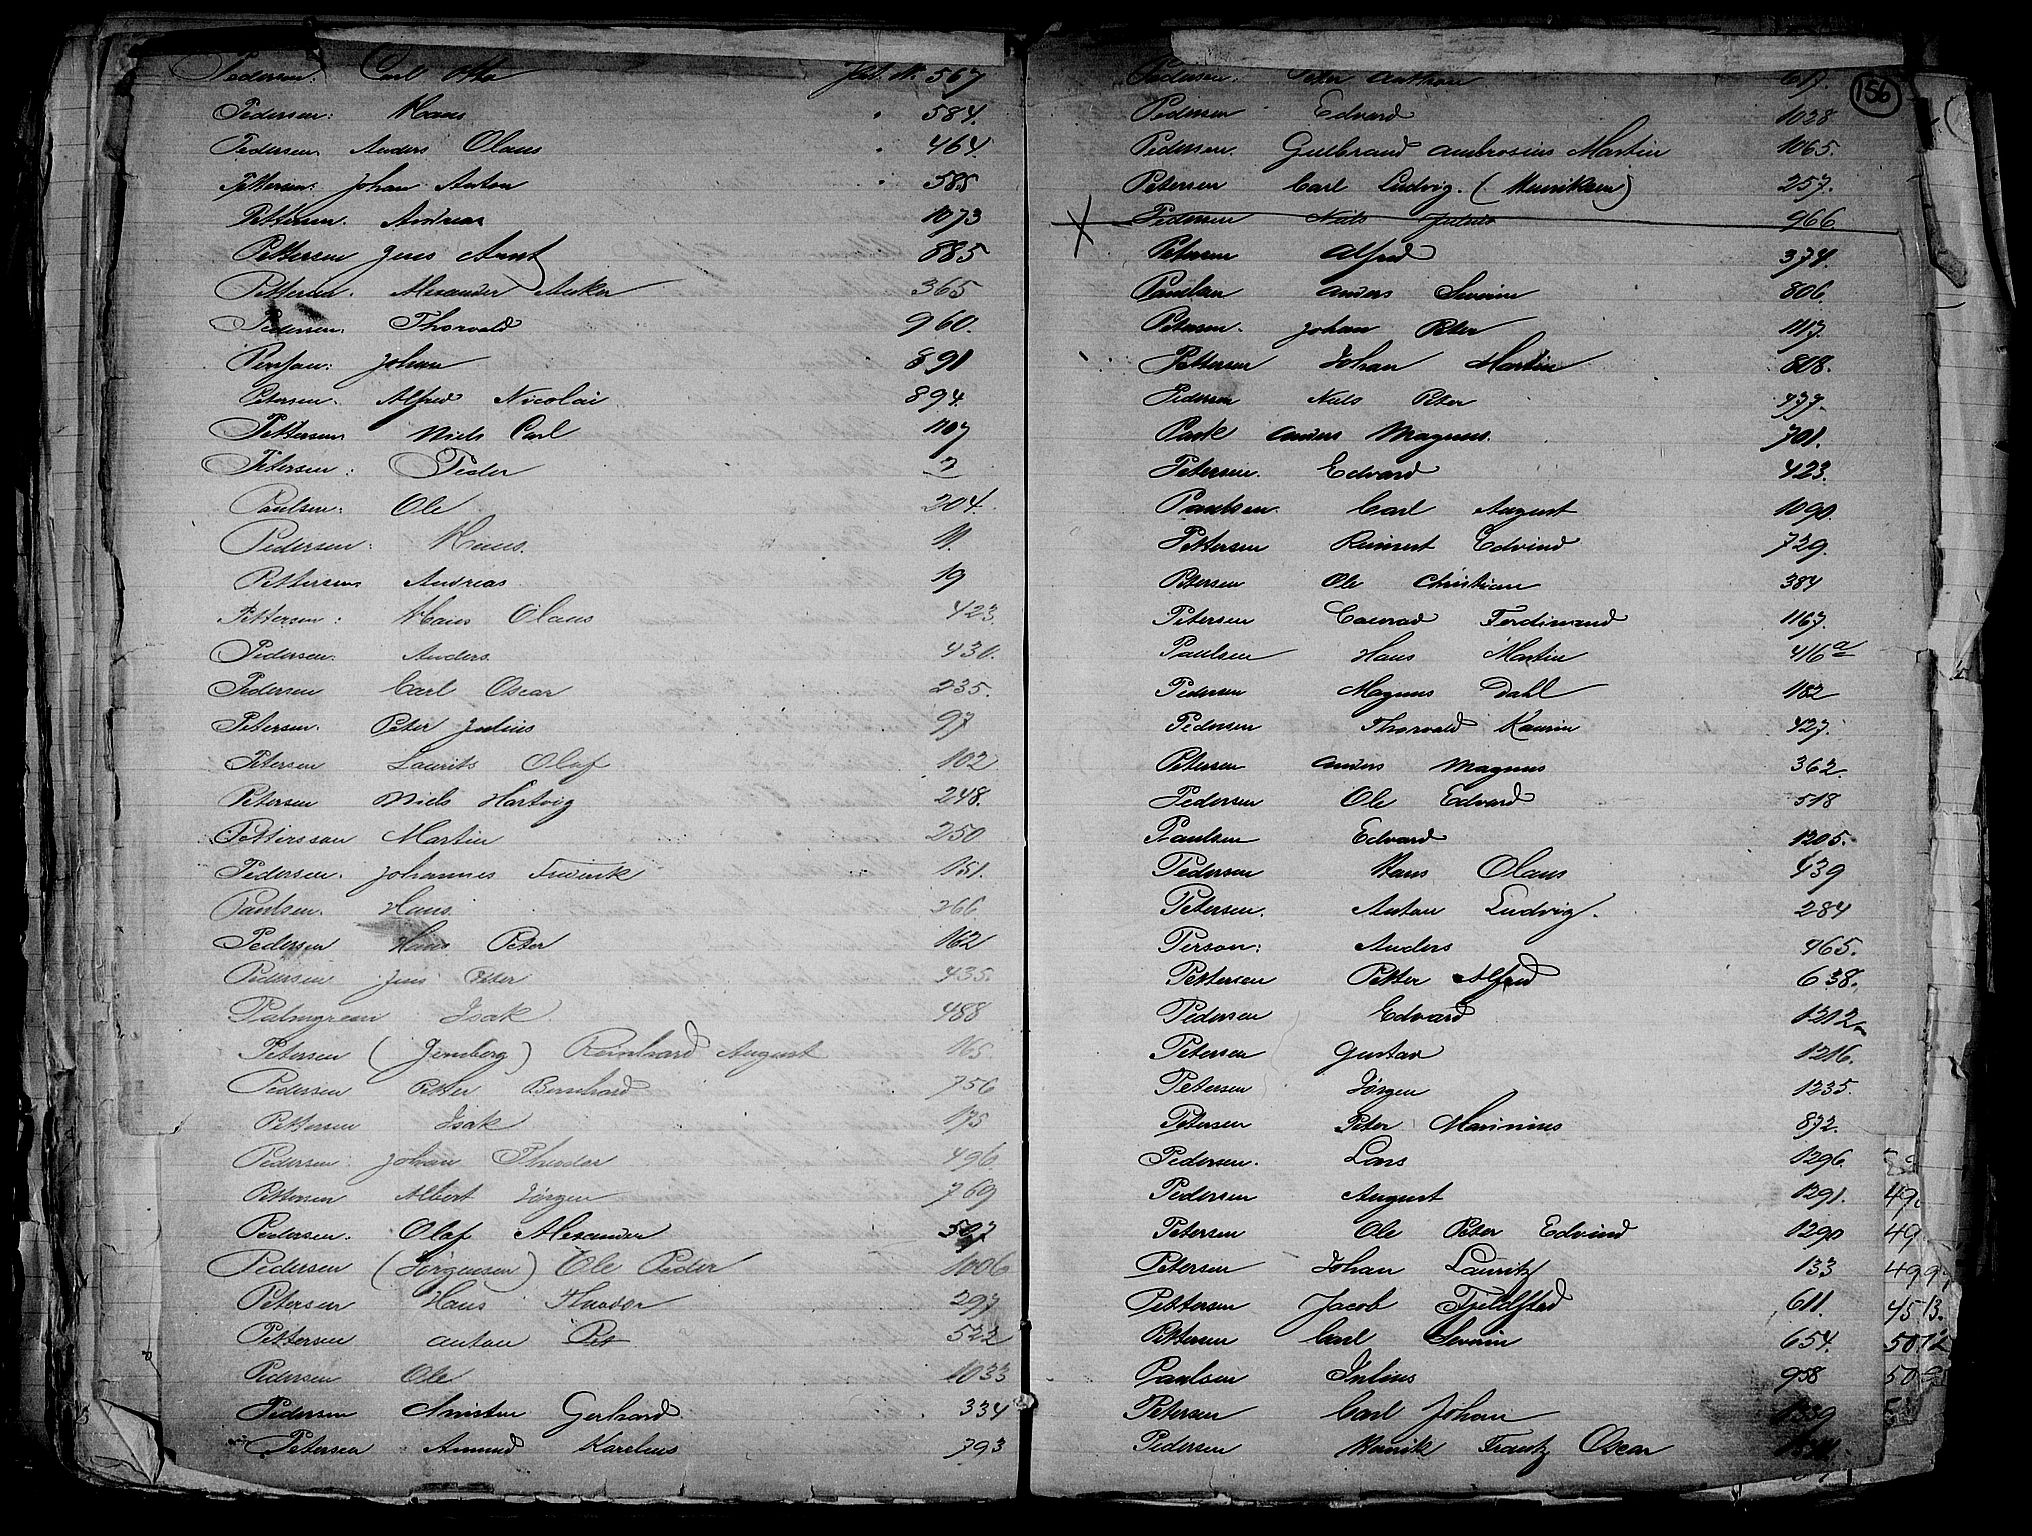 Pedersen: Carl Otto Pat. N. 567
Pedersen: Hans " 584.
Pedersen. Anders Olaus " 464.
Pettersen: Johan Anton " 585
Pettersen. Andreas 1073
Pettersen Jens Arnt 885
Pettersen. Alexander Anker 365
Pedersen. Thorvald 960.
Persson: Johan 891
Petersen. Alfred Nicolai 894.
Pettersen Niels Carl 1107
Petersen: Peder 7
Paulsen: Ole 204.
Pedersen: Hans. 11.
Pettersen Andreas. 19
Pettersen: Hans Olaus 423.
Pedersen. Anders. 430.
Pedersen Carl Oscar 235.
Petersen. Peter Julius 97
Petersen Laurits Olaf 102
Petersen Niels Hartvig 248.
Pettersson Martin 250
Pedersen. Johannes Frederik 151.
Paulsen. Hans. 266
Pedersen Hans Peter 162
Pedersen Jens Peter 435.
Palmgreen Isak 488
Petersen (Jernberg) Reinhard August 165.
Pedersen Petter Bernhard 756
Pettersen Isak 175
Pedersen. Johan Theodor 496.
Pettersen Albert Jørgen 769
Pedersen. Olaf Alexander 507
Pedersen (Jørgensen) Ole Peder 1006
Petersen Hans Theodor 297
Pettersen Anton Pet 522
Pedersen Ole 1033
Pedersen Christen Gerhard 334
Petersen Amund Karelius 793
156
Pedersen. Peter Anthon 617.
Pedersen Edvard 1028
Pedersen. Gulbrand Ambrosius Martin 1065.
Petersen Carl Ludvig. (Henriksen) 257.
X Pedersen Niels Julius 966
Petersen Alfred 374.
Paulsen Anders Severin 806
Petersen. Johan Peter 1117.
Pettersen Johan Martin 818.
Pedersen Niels Peter 737.
Park Anders Magnus. 701.
Petersen. Edvard 423.
Paulsen. Carl August 1090.
Pettersen Reinert Edvind 729.
Petersen Ole Christian 384
Petersen Conrad Ferdinand 1167.
Paulsen Hans Martin 416a
Pedersen Magnus Dahl 1182
Pedersen Thorvald Kaurin 427.
Petersen Anders Magnus 362.
Pedersen Ole Edvard 518
Paulsen Edvard 1205.
Pedersen Hans Olaus 439
Petersen. Anton Ludvig. 284
Person: Anders 465.
Pettersen Petter Alfred 638.
Pedersen Edvard 1212
Petersen Gustav 1216.
Petersen Jørgen 1235.
Petersen Peter Marinius 872.
Pedersen. Lars 1296.
Pedersen August 1291. 49.
Petersen Ole Peter Edvind 1290 49
Petersen Johan Lauritz 133 499
Pettersen Jacob Fjeldsted 611. 4513.
Pettersen Carl Severin 654. 5012
Paulsen Julius 958 50
Petersen Carl Johan 1339
Pedersen Henrik Frantz Oscar